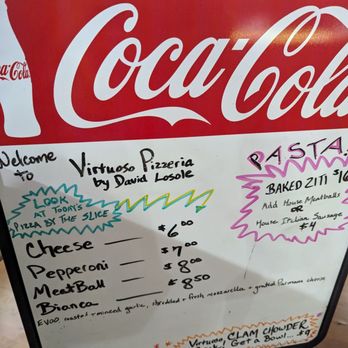 Coca-Cola
Coca-Cola
Welcome
to
Virtuoso Pizzeria
by David Losole
LOOK
AT TODAY'S
PIZZA BY THE SLICE
Cheese — $6.00
Pepperoni — $7.00
MeatBall — $8.00
Bianca — $8.50
EVOO, roasted + minced garlic, shredded + fresh mozzarella + grated Parmesan cheese
PASTA
BAKED ZITI $16
Add House Meatballs
OR
House Italian Sausage
$4
Virtuoso CLAM CHOWDER
Get a Bowl... $9